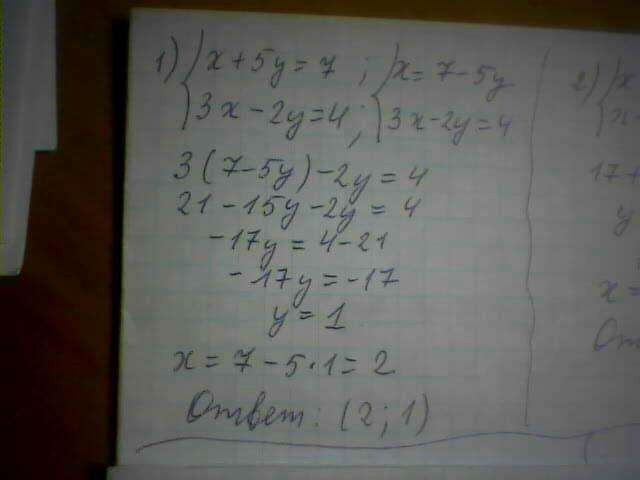 1) { x + 5y = 7 ; { x = 7 - 5y
3x - 2y = 4 ; 3x - 2y = 4
3(7 - 5y) - 2y = 4
21 - 15y - 2y = 4
-17y = 4 - 21
-17y = -17
y = 1
x = 7 - 5 · 1 = 2
Ответ: (2; 1)
2) { x
17 +
y
x =